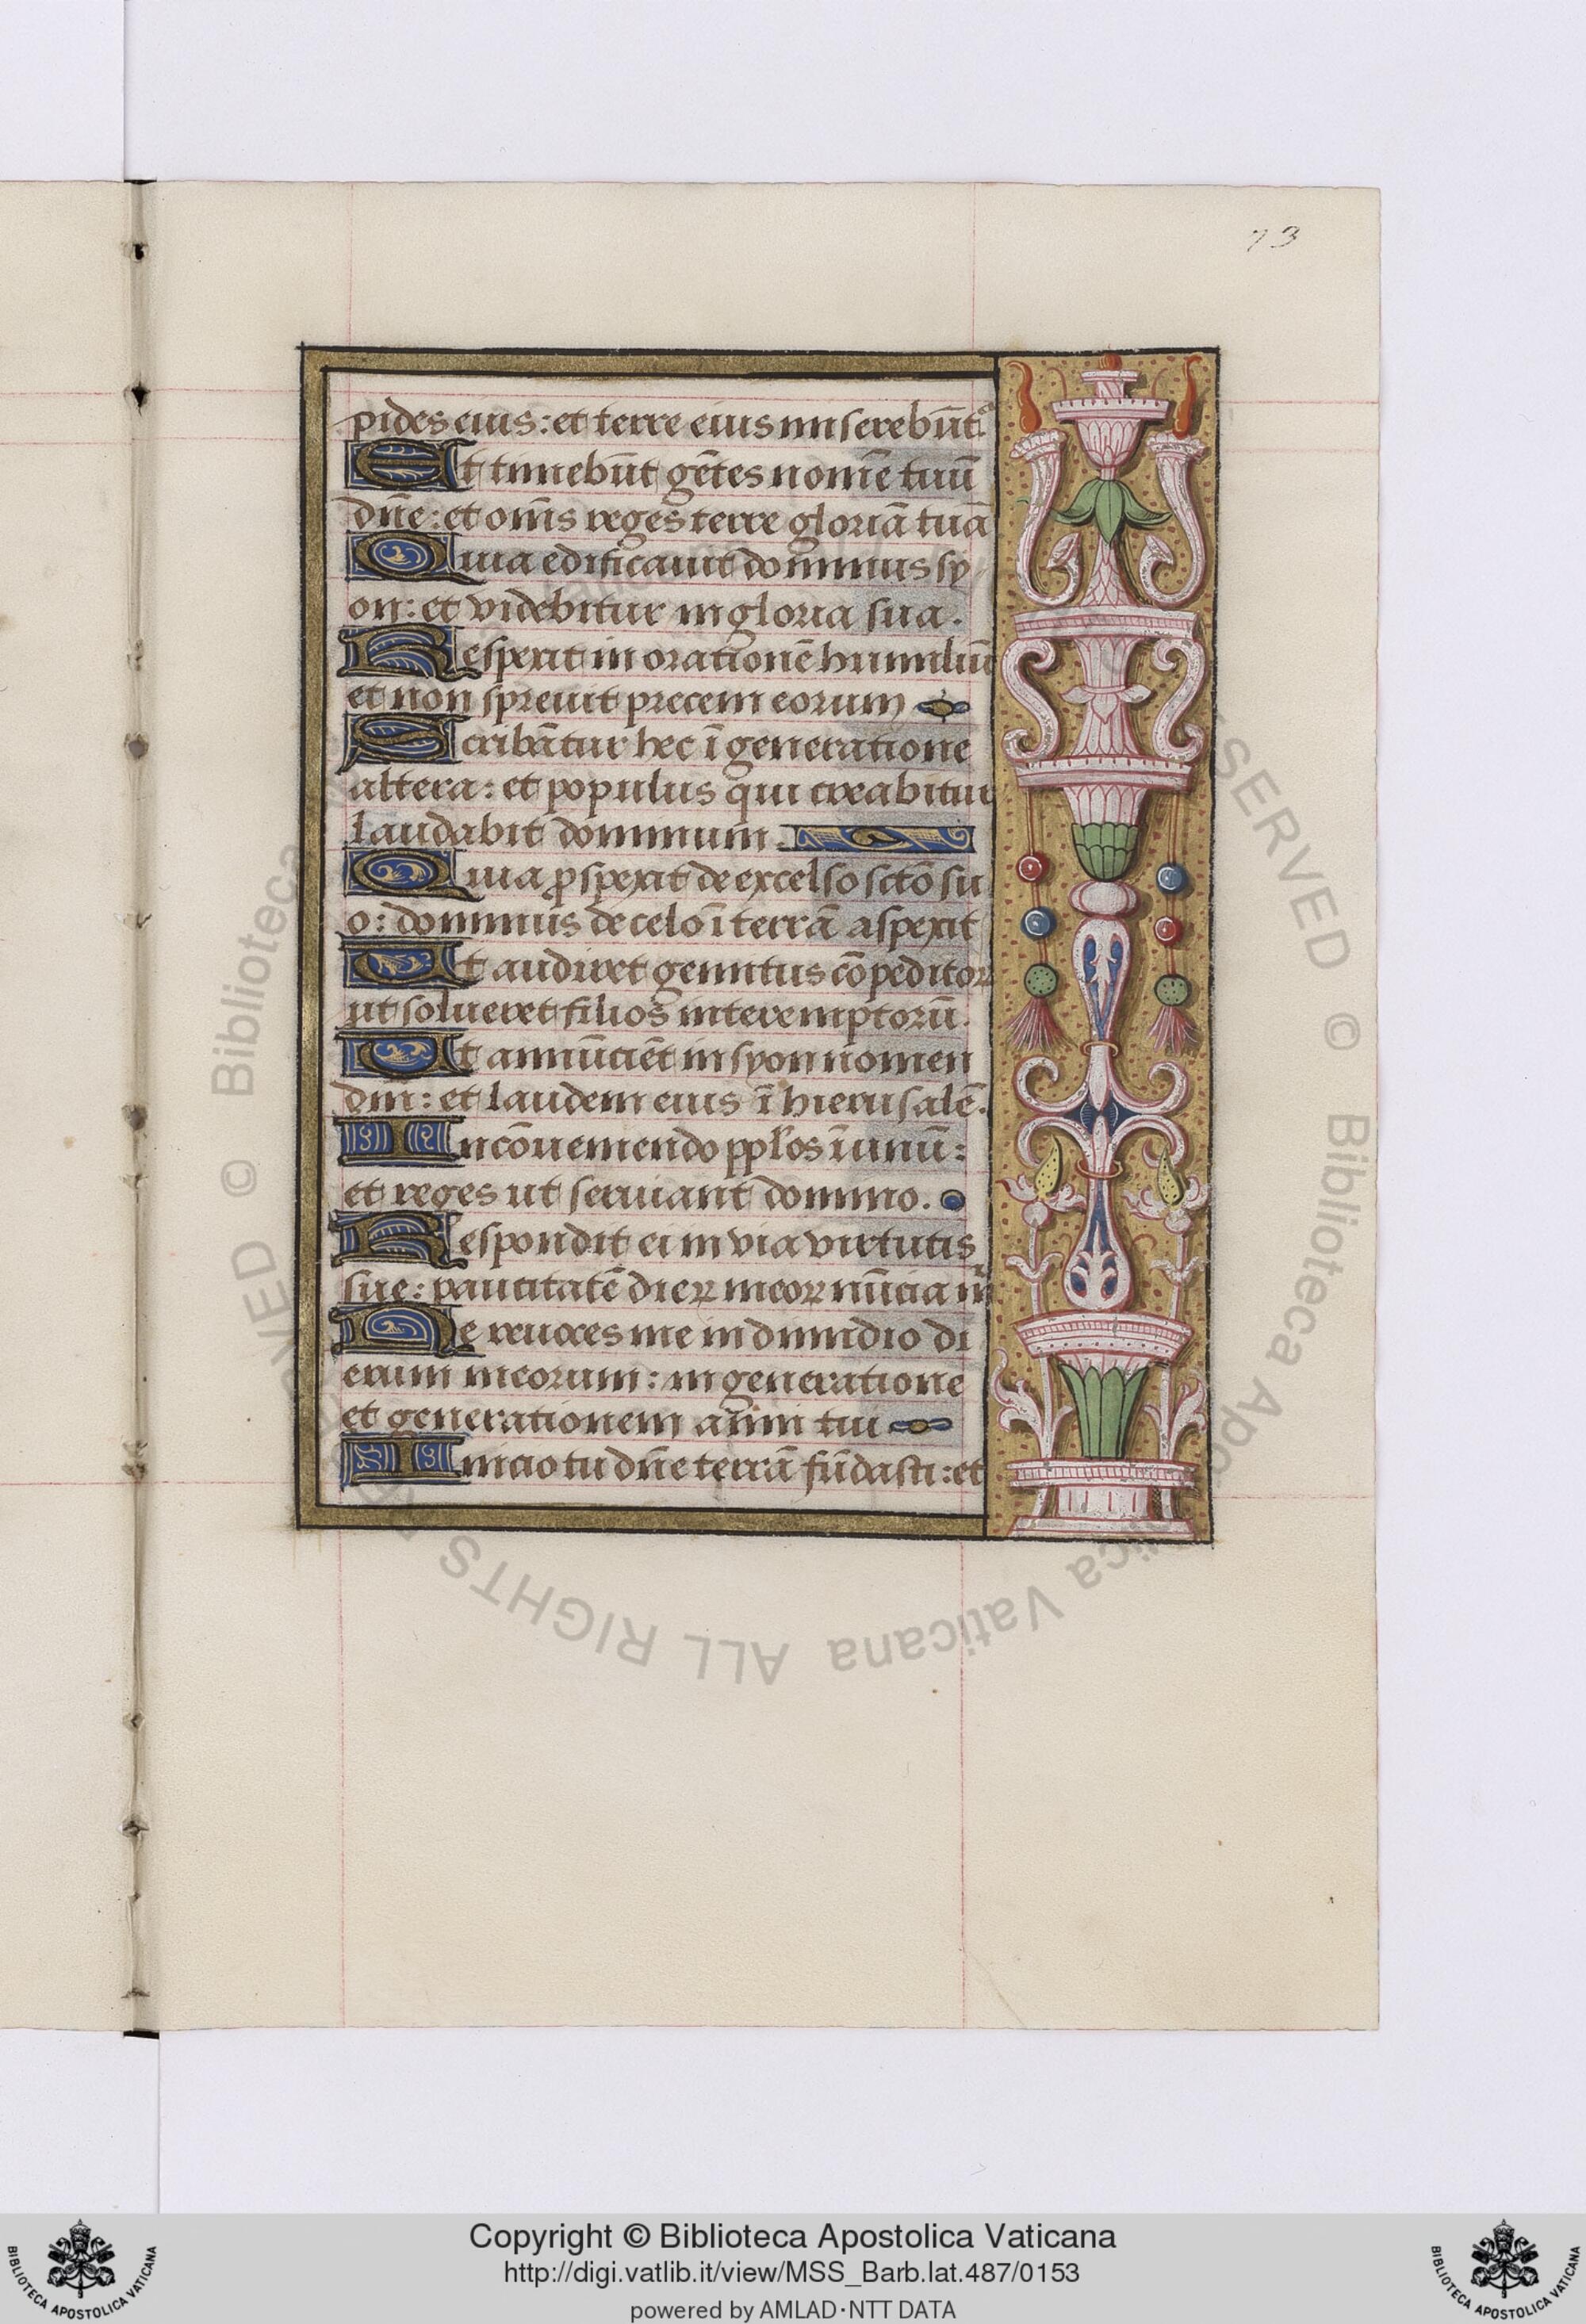 73
pides eius: et terre eius miserebūt͛
Et timebūt gētes nomē tuū
dn̄e: et om̄s reges terre gloriā tuā
Quia edificauit dominus sy
on: et videbitur in gloria sua.
Respexit in orationē humiliū
et non spreuit precem eorum
Scribātur hec ī generatione
altera: et populus qui creabitur
laudabit dominum.
Quia ꝓspexit de excelso scto̅ su
o: dominus de celo ī terrā aspexit
Ut audiret gemitus cōpeditoꝝ
ut solueret filios interemptorū.
Ut annūciēt in syon nomen
dn̄i: et laudem eius ī hierusalē.
In cōueniendo pplōs ī unū:
et reges ut seruiant domino.
Respondit ei in via virtutis
sue: paucitatē dieꝝ meoꝝ nūcia m̄
Ne reuoces me in dimidio di
erum meorum: in generatione
et generationem anni tui
Inicio tu dn̄e terrā fūdasti: et
© Biblioteca Apostolica Vaticana ALL RIGHTS RESERVED
© Biblioteca
Copyright © Biblioteca Apostolica Vaticana
http://digi.vatlib.it/view/MSS_Barb.lat.487/0153
powered by AMLAD·NTT DATA
BIBLIOTECA APOSTOLICA VATICANA
BIBLIOTECA APOSTOLICA VATICANA